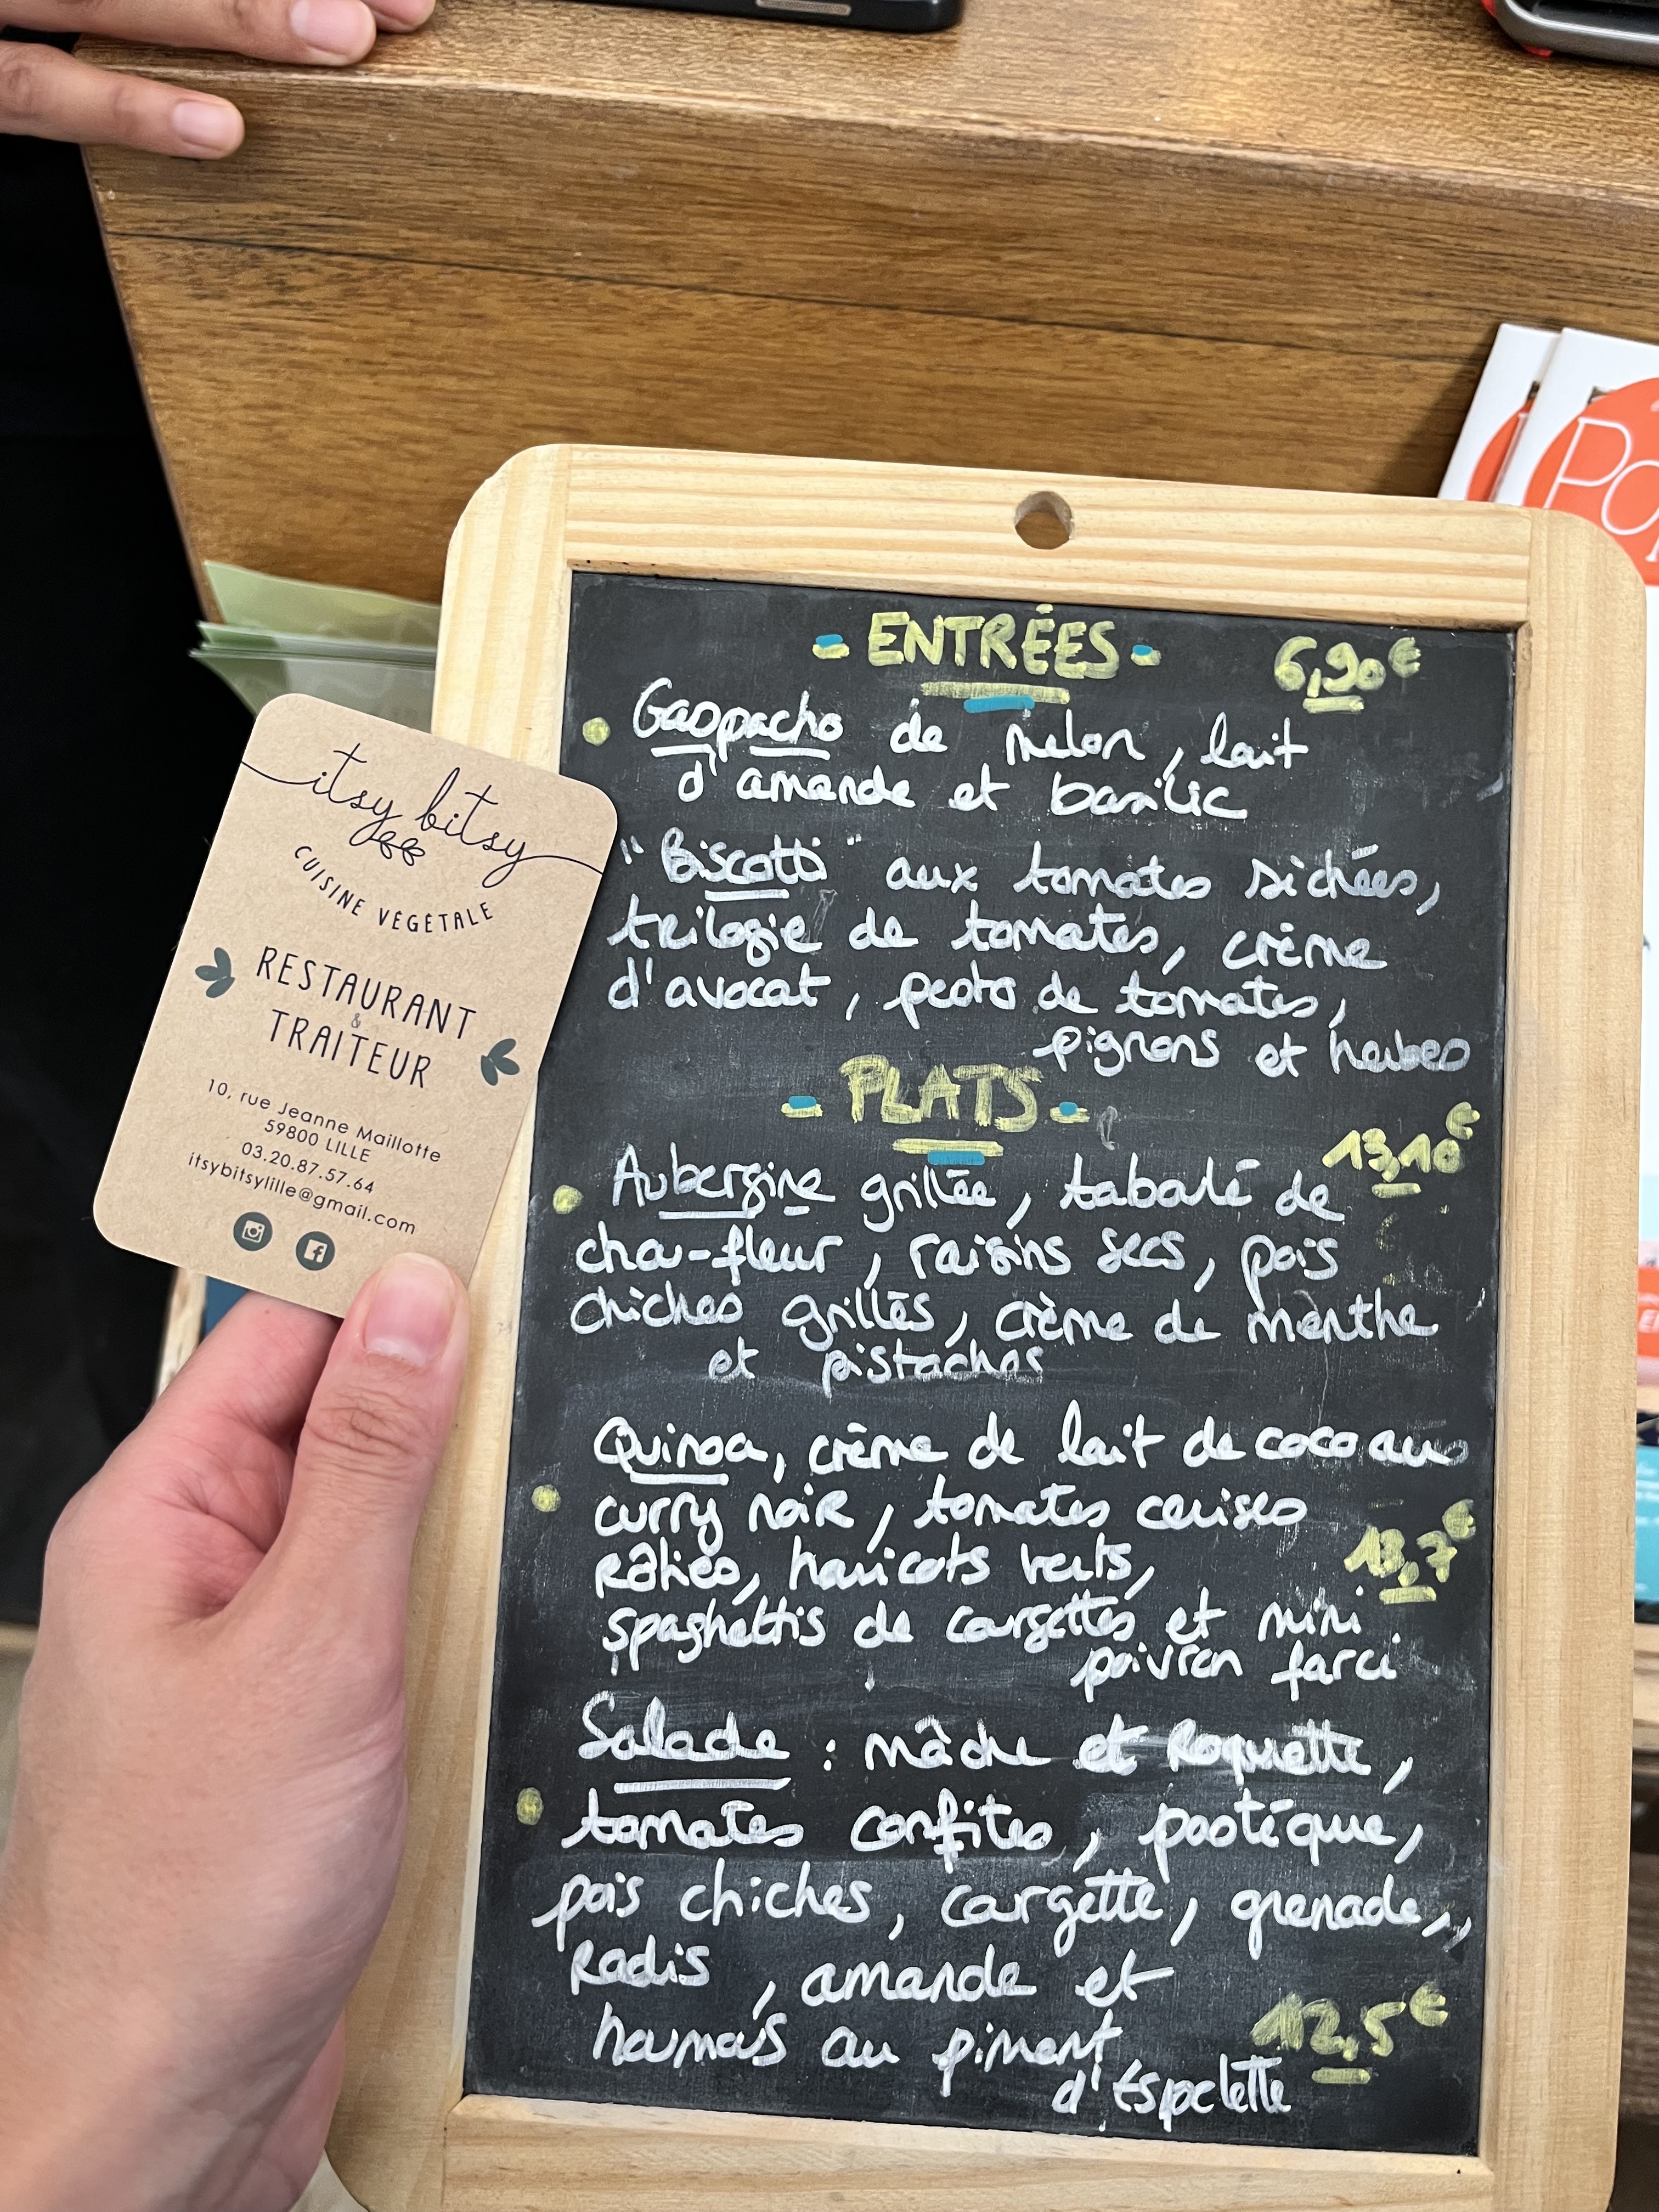 itsy bitsy
CUISINE VÉGÉTALE
RESTAURANT
&
TRAITEUR
10, rue Jeanne Maillotte
59800 LILLE
03.20.87.57.64
itsybitsylille@gmail.com
- ENTRÉES - 6,90€
Gaspacho de melon, lait
d'amande et basilic
"Biscotti" aux tomates séchées,
trilogie de tomates, crème
d'avocat, pesto de tomates,
pignons et herbes
- PLATS -
13,10€
Aubergine grillée, taboulé de
chou-fleur, raisins secs, pois
chiches grillés, crème de menthe
et pistaches
Quinoa, crème de lait de coco au
curry noir, tomates cerises
rôties, haricots verts, 13,7€
spaghettis de courgettes et mini
poivron farci
Salade : mâche et Roquette,
tomates confites, pastèque,
pois chiches, courgette, grenade,
Radis, amande et
houmous au piment 12,5€
d'Espelette